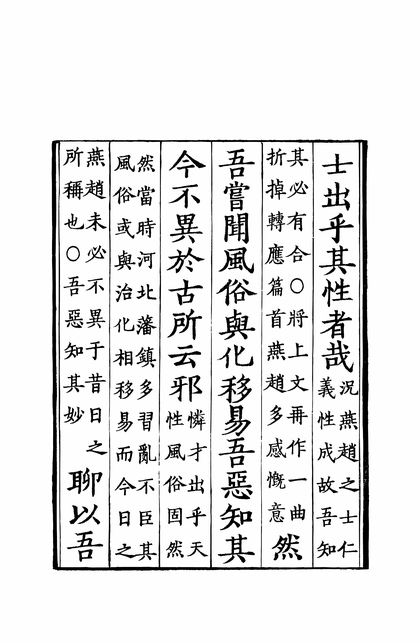 士出乎其性者哉況燕趙之士仁義性成故吾知
其必有合○將上文再作一曲折掉轉應篇首燕趙多感慨意然
吾嘗聞風俗與化移易吾惡知其
今不異於古所云邪憐才出乎天性風俗固然
然當時河北藩鎮多習亂不臣其風俗或與治化相移易而今日之
燕趙未必不異于昔日之所稱也○吾惡知其妙聊以吾